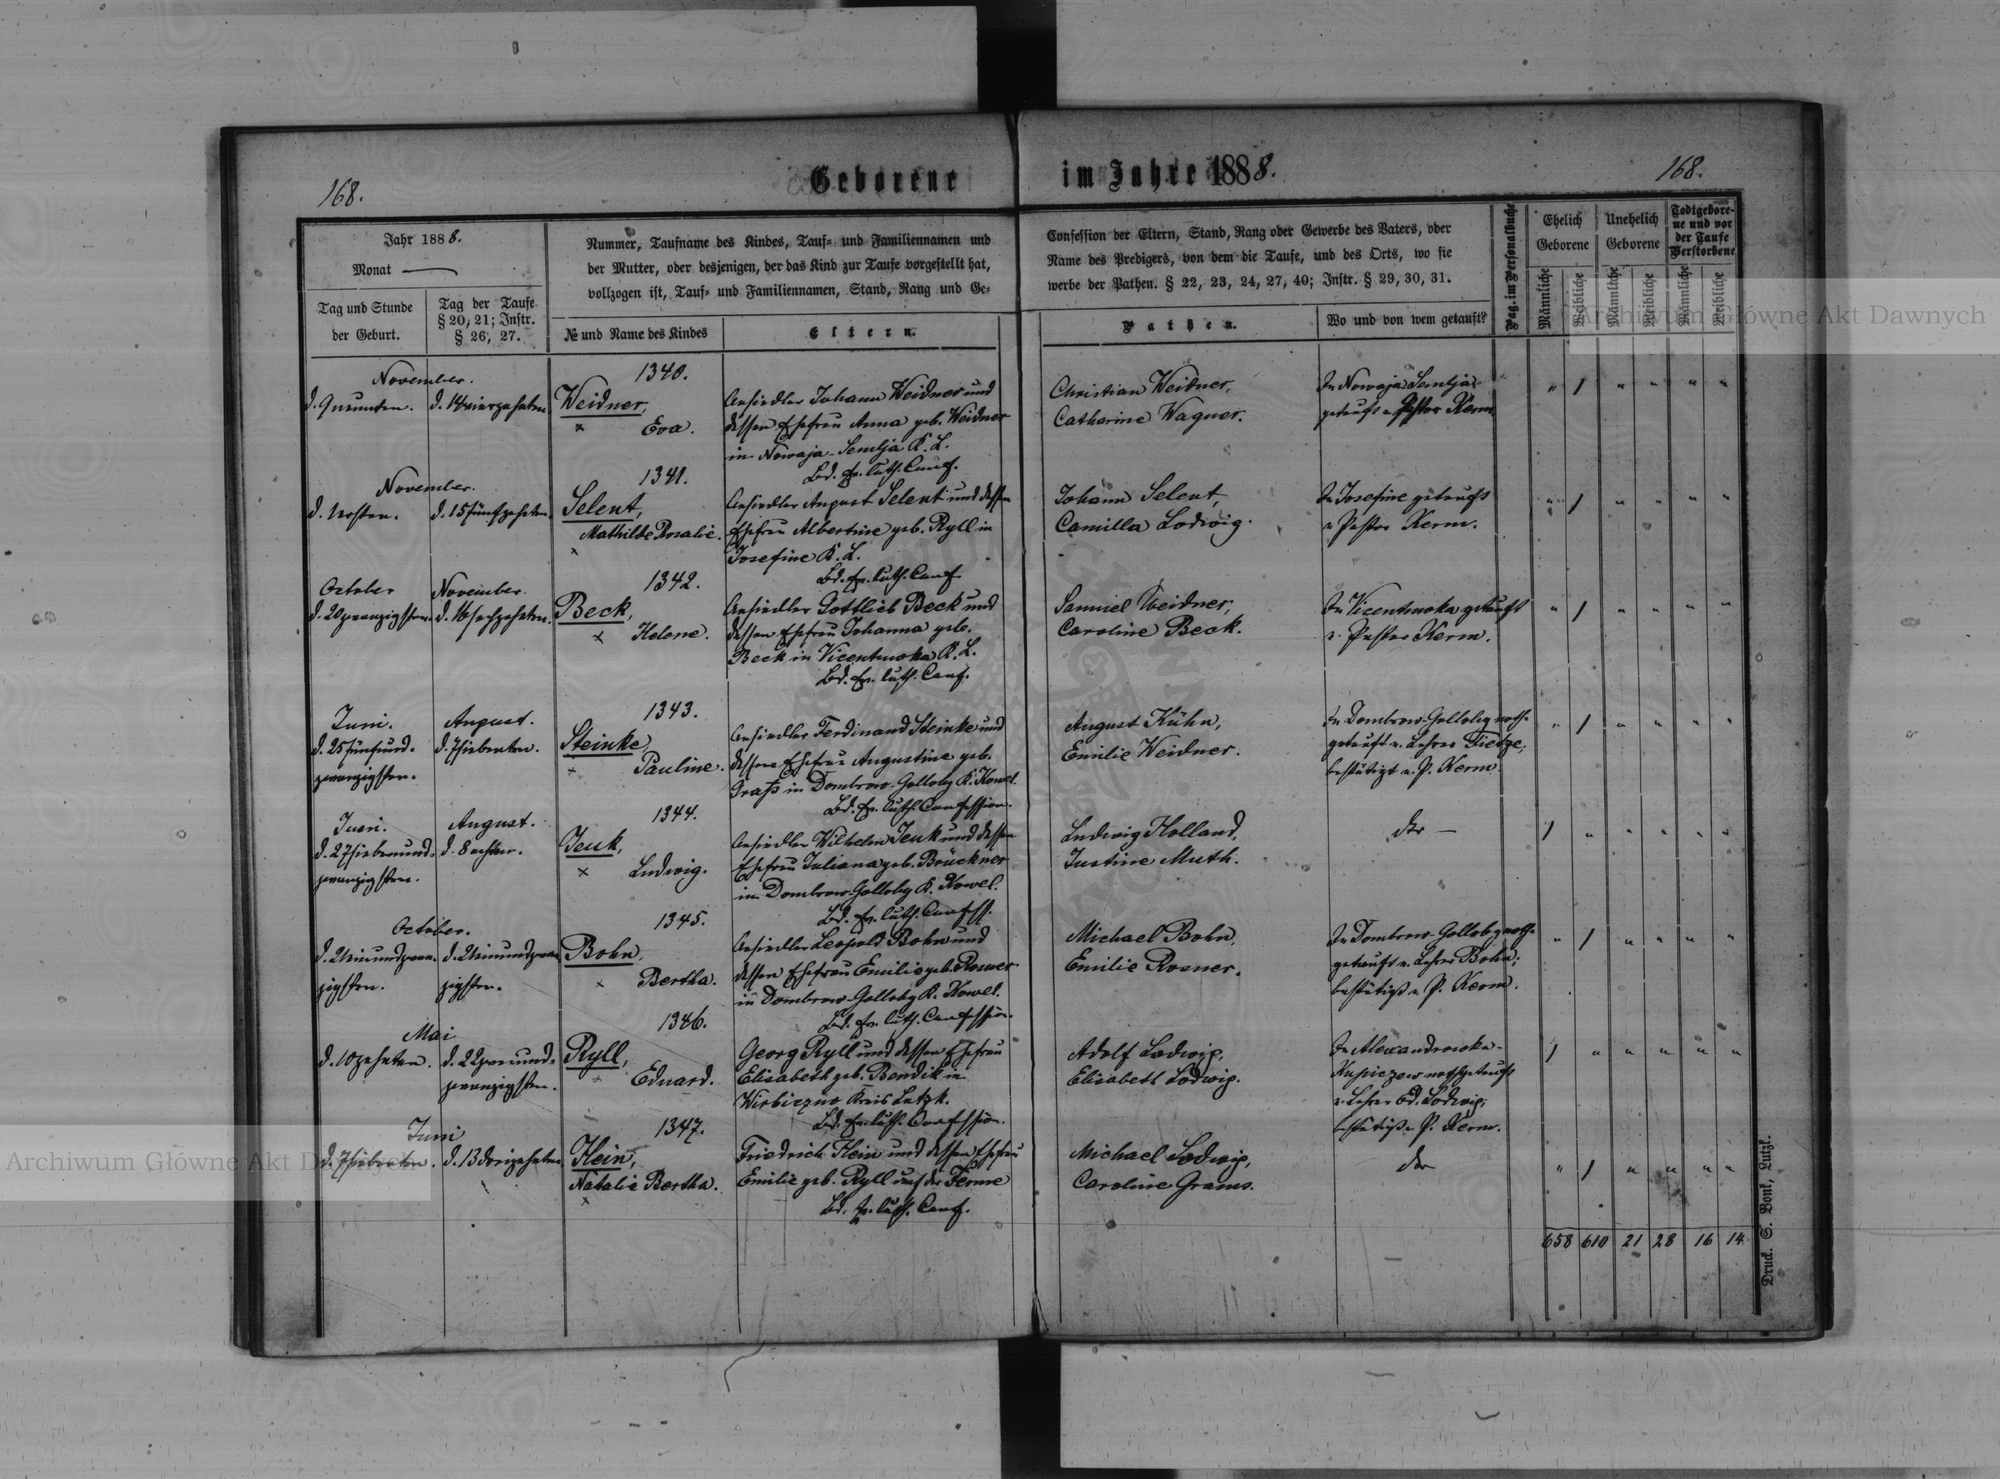 168.
Geborene
im Jahre 1888.
168.
Jahr 1888.
Monat
Tag und Stunde
der Geburt.
Tag der Taufe
§ 20, 21; Instr.
§ 26, 27.
Nummer, Taufname des Kindes, Tauf- und Familiennamen und
der Mutter, oder desjenigen, der das Kind zur Taufe vorgestellt hat,
vollzogen ist, Tauf- und Familiennamen, Stand, Rang und Ge-
№ und Name des Kindes
Eltern.
Confession der Eltern, Stand, Rang oder Gewerbe des Vaters, oder
Name des Predigers, von dem die Taufe, und des Orts, wo sie
werbe der Pathen. § 22, 23, 24, 27, 40; Instr. § 29, 30, 31.
Pathen.
Wo und von wem getauft?
Pag. im Personalbuche
Ehelich
Geborene
Unehelich
Geborene
Todtgebore-
ne und vor
der Taufe
Verstorbene
Männliche
Weibliche
Männliche
Weibliche
Männliche
Weibliche
November.
d. 9 neunten.
d. 14 vierzehnten.
1340.
Weidner,
Eva.
Ansiedler Johann Weidner und
dessen Ehefrau Anna geb. Weidner
in Nowaja-Semlja K. L.
Bd. Ev. luth. Conf.
Christian Weidner,
Catharine Wagner.
In Nowaja Semlja
getauft v. Pastor Kerm
November.
d. 1 ersten.
d. 15 fünfzehnten.
1341.
Selent,
Mathilde Rosalie.
Ansiedler August Selent und dessen
Ehefrau Albertine geb. Ryll in
Josefine K. L.
Bd. Ev. luth. Conf.
Johann Selent,
Camilla Lodwig.
In Josefine getauft
v. Pastor Kerm.
October
d. 20 zwanzigsten.
November.
d. 16 sechzehnten.
1342.
Beck,
Helene.
Ansiedler Gottlieb Beck und
dessen Ehefrau Johanna geb.
Beck in Vicentuwka K. L.
Bd. Ev. luth. Conf.
Samuel Weidner,
Caroline Beck.
In Vicentuwka getauft
v. Pastor Kerm.
Juni.
d. 25 fünfund-
zwanzigsten.
August.
d. 7 siebenten.
1343.
Steinke,
Pauline.
Ansiedler Ferdinand Steinke und
dessen Ehefrau Augustine geb.
Grass in Dombrow-Golloby K. Kowel.
Bd. Ev. luth. Confession.
August Kühn,
Emilie Weidner.
In Dombrow-Golloby noth-
getauft v. Lehrer Tietze,
bestätigt v. P. Kerm.
Juni.
d. 27 siebenund-
zwanzigsten.
August.
d. 8 achten.
1344.
Jeuk,
Ludwig.
Ansiedler Wilhelm Jeuk und dessen
Ehefrau Juliana geb. Brückner
in Dombrow-Golloby K. Kowel.
Bd. Ev. luth. Confess.
Ludwig Holland,
Justine Muth.
October.
d. 21 einundzwan-
zigsten.
d. 21 einundzwan-
zigsten.
1345.
Bohn,
Bertha.
Ansiedler Leopold Bohn und
dessen Ehefrau Emilie geb. Rosner
in Dombrow-Golloby K. Kowel.
Bd. Ev. luth. Confession.
Michael Bohn,
Emilie Rosner.
In Dombrow-Golloby noth-
getauft v. Lehrer Bohn;
bestätigt v. P. Kerm.
Mai
d. 10 zehnten.
d. 22 zweiund-
zwanzigsten.
1346.
Ryll,
Eduard.
Georg Ryll und dessen Ehefrau
Elisabeth geb. Bendik in
Wirbiczno Kreis Lutzk.
Bd. Ev. luth. Confession.
Adolf Lodwig,
Elisabeth Lodwig.
In Alexandrowka-
Kupiczew nothgetauft
v. Lehrer Ed. Lodwig;
bestätigt v. P. Kerm.
Juni
d. 7 siebenten.
d. 13 dreizehnten.
1347.
Hein,
Natalie Bertha.
Friedrich Hein und dessen Ehefrau
Emilie geb. Ryll auf der Ferme
Bd. Ev. luth. Conf.
Michael Lodwig,
Caroline Grams.
658 610 21 28 16 14
Druck. S. Bonk, Lutzk.
Archiwum Główne Akt Dawnych
Archiwum Główne Akt Dawnych